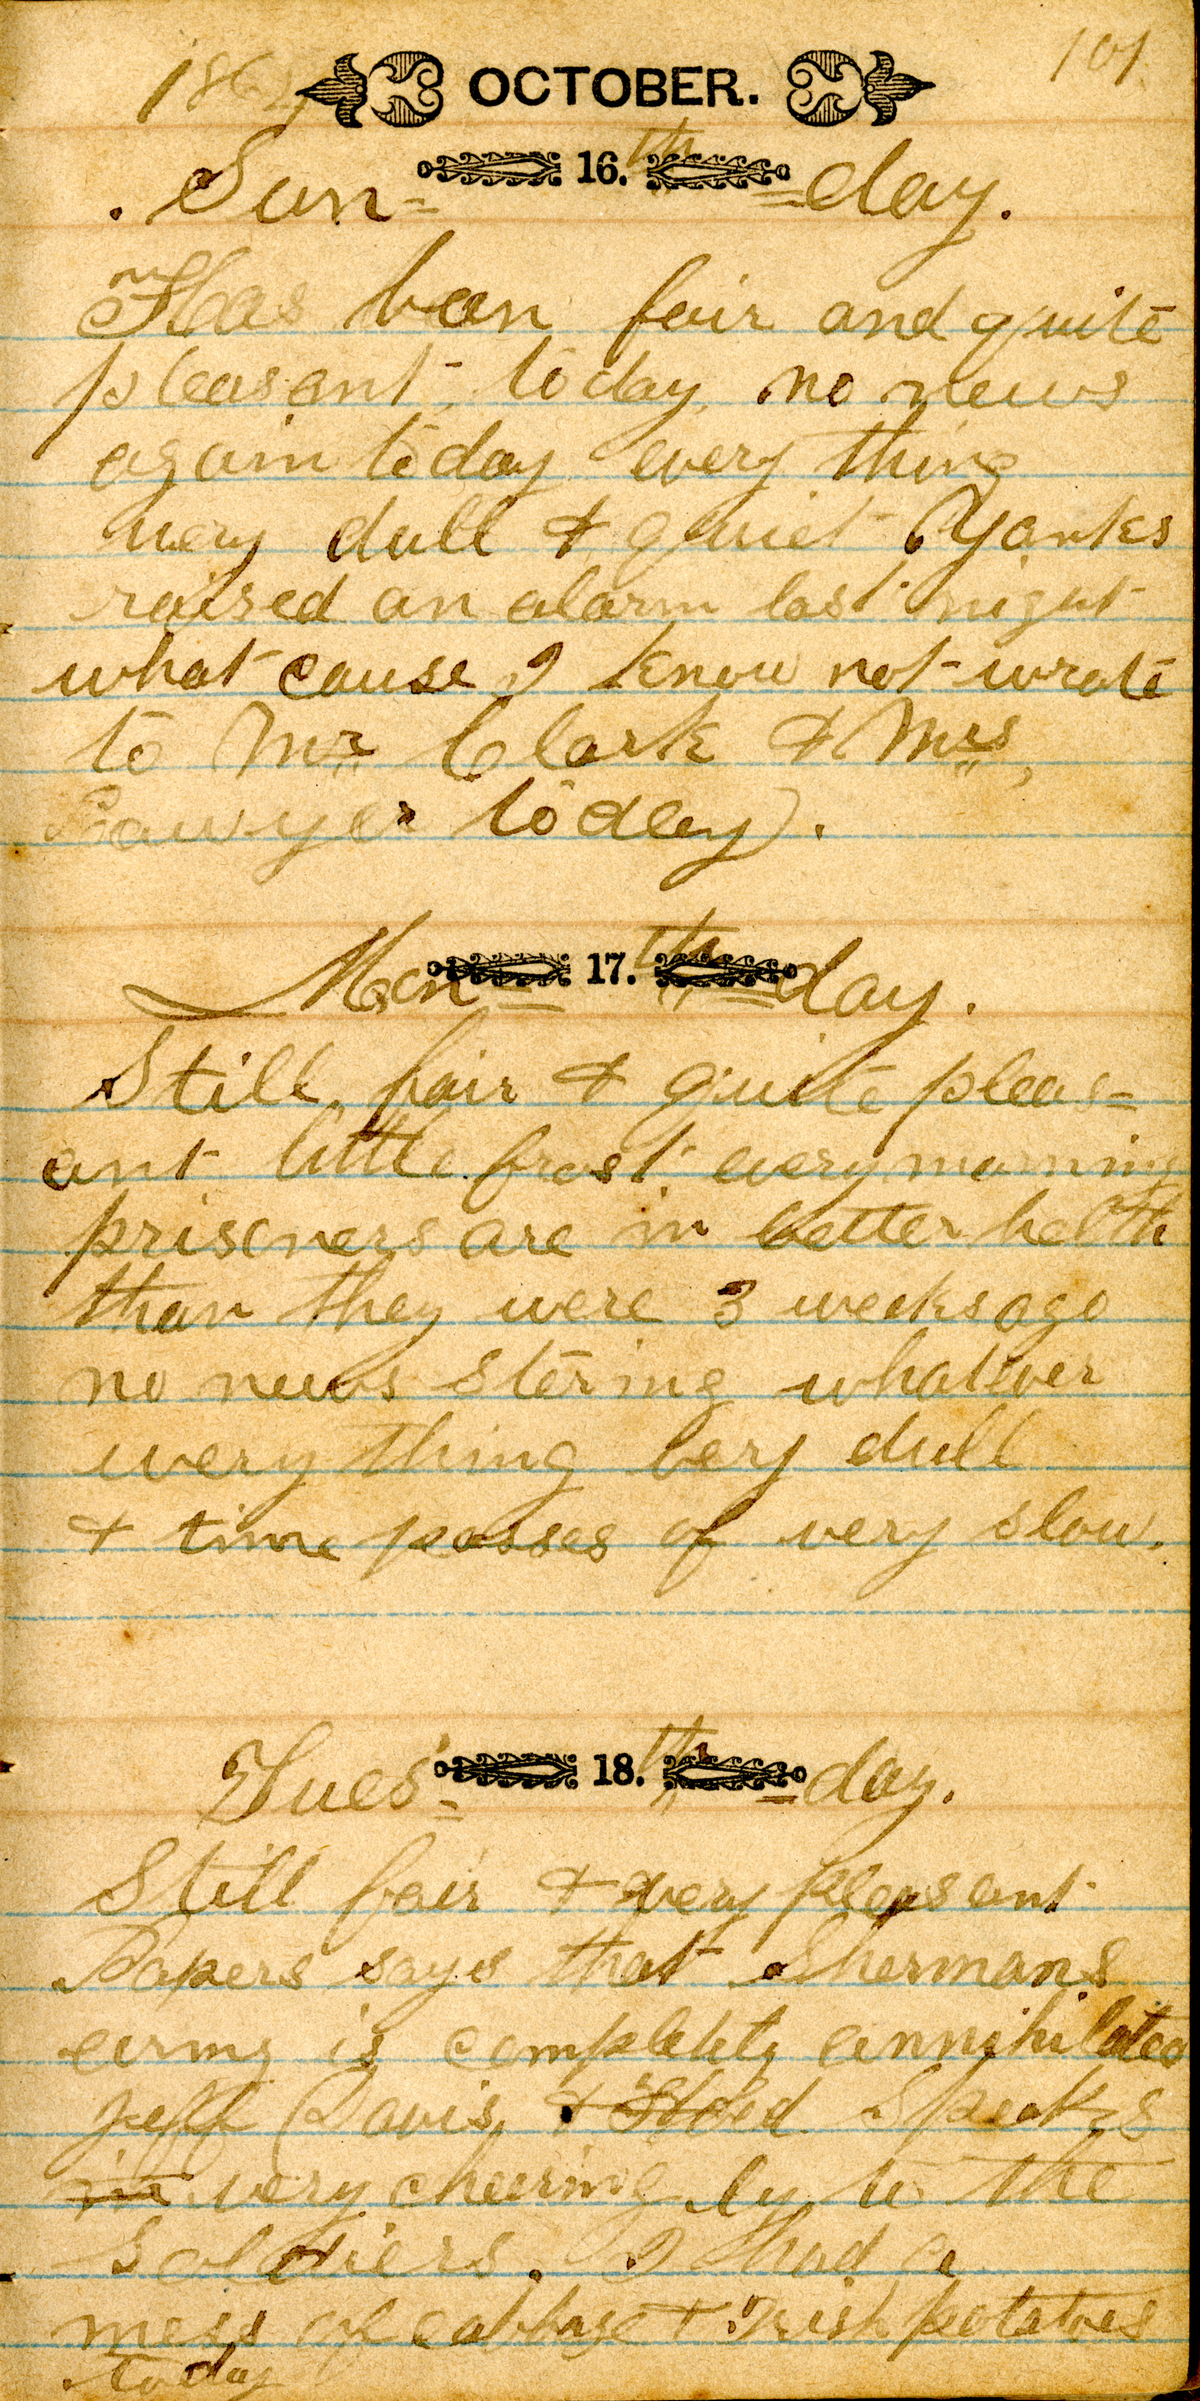 1864 OCTOBER. 101
Sun= 16.th =day.
Has been fair and quite
pleasant today. no news
again today every thing
very dull & quiet. Yanks
raised an alarm last night
what cause I know not wrote
to Mr. Clark & Mrs,
Sawyer today.
Mon= 17.th =day.
Still, fair & quite pleas=
ant little frost every morning
prisoners are in better helth
than they were 3 weeks ago
no news stering whatever
every thing very dull
& time passes of very slow.
Tues= 18.th =day.
Still fair & very pleasant
Papers says that Shermans
army is completely annihilated
Jeff Davis, & Hood Speaks
in very cheering ly to the
Soldiers. I had a
mess of cabbage & Irish potatoes
today